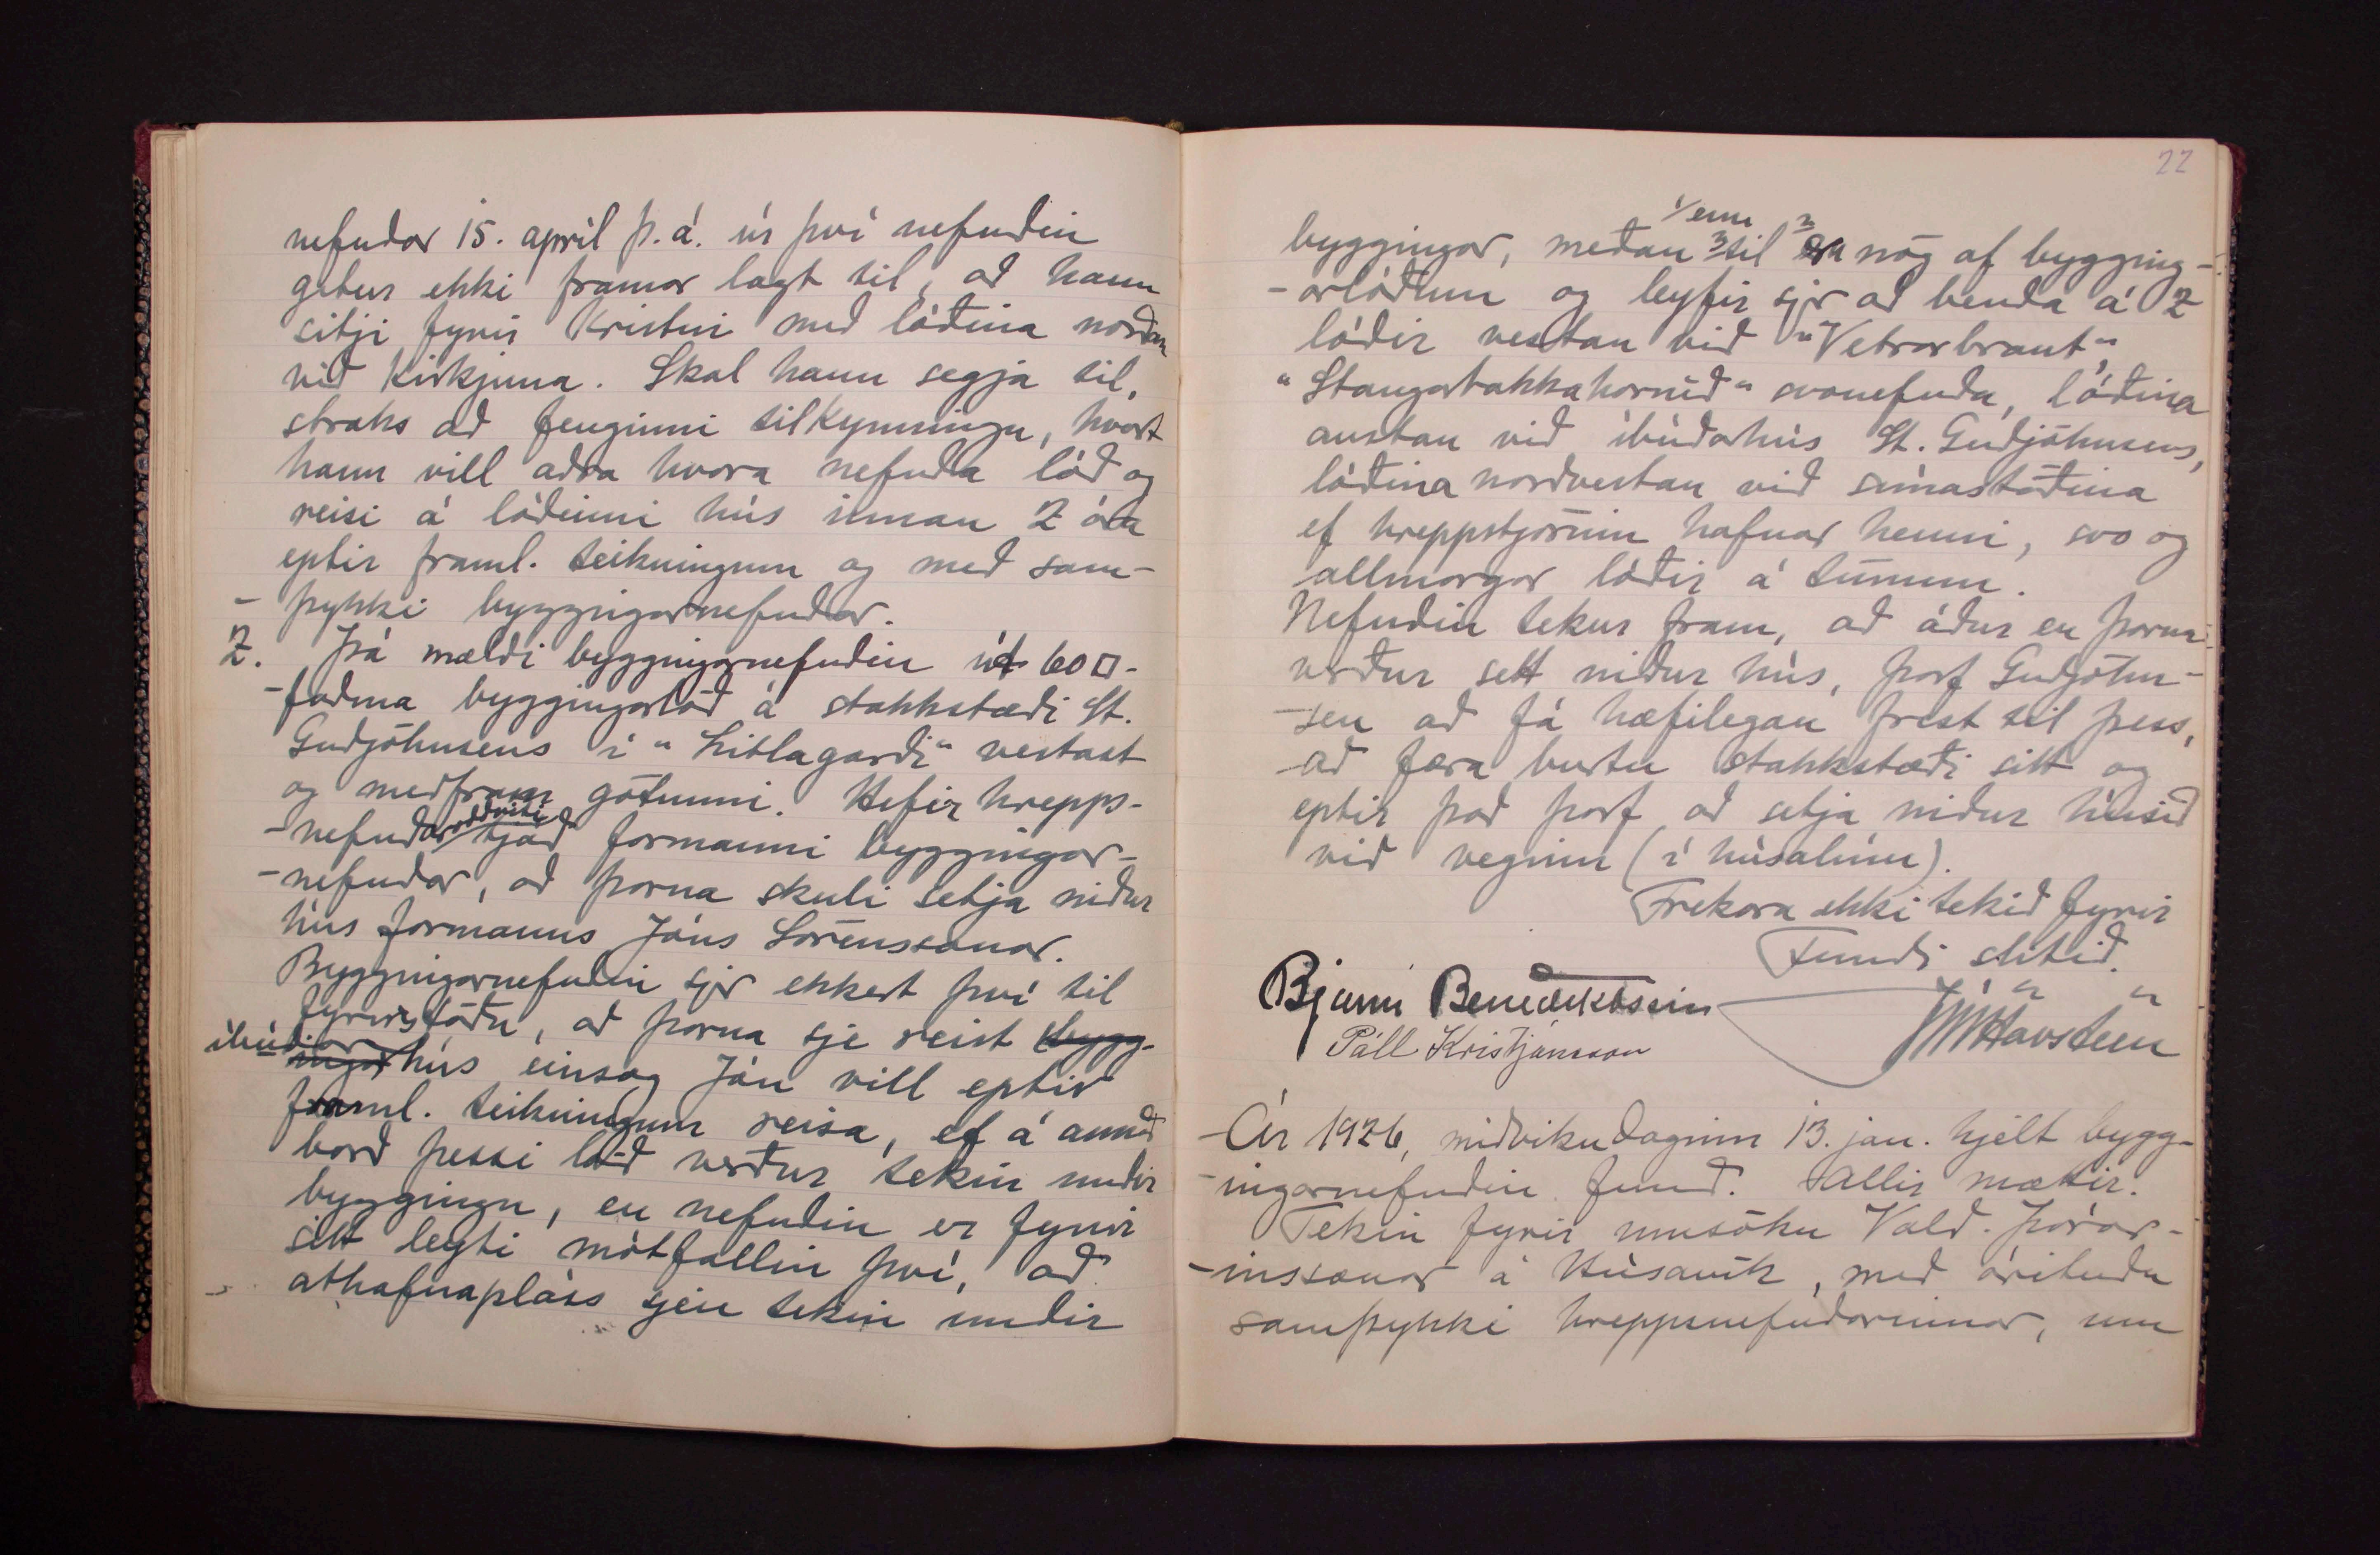 nefndar 15. april þ.á. úr því nefndin
getur ekki framar lagt til, að hann
sitji fyrir Kristni með lóðina norðan
við Kirkjuna. Skal hann segja til,
straks að fenginni tilkynningu, hvort
hann vill aðra hvora nefnda lóð og
reisi á lóðinni hús innan 2 ára
eptir framl. teikningum og með sam-
- þykki byggingarnefndar.
2. Þá mældi byggingarnefndin út 60 □-
-faðma byggingarlóð á stakkstæði St.
Guðjóhnsens í "Litlagarði" vestast
og meðfram götunni. Hefir hrepps-
-nefndaroddviti tjáð formanni byggingar-
-nefndar, að þarna skuli setja niður
hús formanns Jóns Sörenssonar.
Byggingarnefndin sjer ekkert því til
fyrirstöðu, að þarna sje reist bygg-
íbúðar ingar hús einsog Jón vill eptir
framl. teikningum reisa, ef á annað
borð þessi lóð verður tekin undir
byggingu, en nefndin er fyrir
sitt leyti mótfallin því, að
athafnapláss sjeu tekin undir
22
byggingar, meðan 3 til 1/enn 2 er nóg af bygging-
-arlóðum og leyfir sjer að benda á 2
lóðir vestan við "Vetrarbraut",
"Stangarbakkahornið" svonefnda, lóðina
austan við íbúðarhús St. Guðjóhnsens,
lóðina norðvestan við símastöðina
ef hreppstjórinn hafnar henni, svo og
allmargar lóðir á túnum.
Nefndin tekur fram, að áður en þarna
verður sett niður hús, þarf Guðjohn-
-sen að fá hæfilegan frest til þess,
að færa burtu stakkstæði sitt og
eptir það þarf að setja niður húsið
við veginn (í húsalínu).
Frekara ekki tekið fyrir
Fundi slitið.
Bjarni Benediktsson
Páll Kristjánsson
JV Havsteen
Ár 1926, miðvikudaginn 13. jan. hjelt bygg-
-ingarnefndin fund. Allir mættir.
Tekin fyrir umsókn Vald. Þórar-
-inssonar á Húsavík, með árituðu
samþykki hreppsnefndarinnar, um